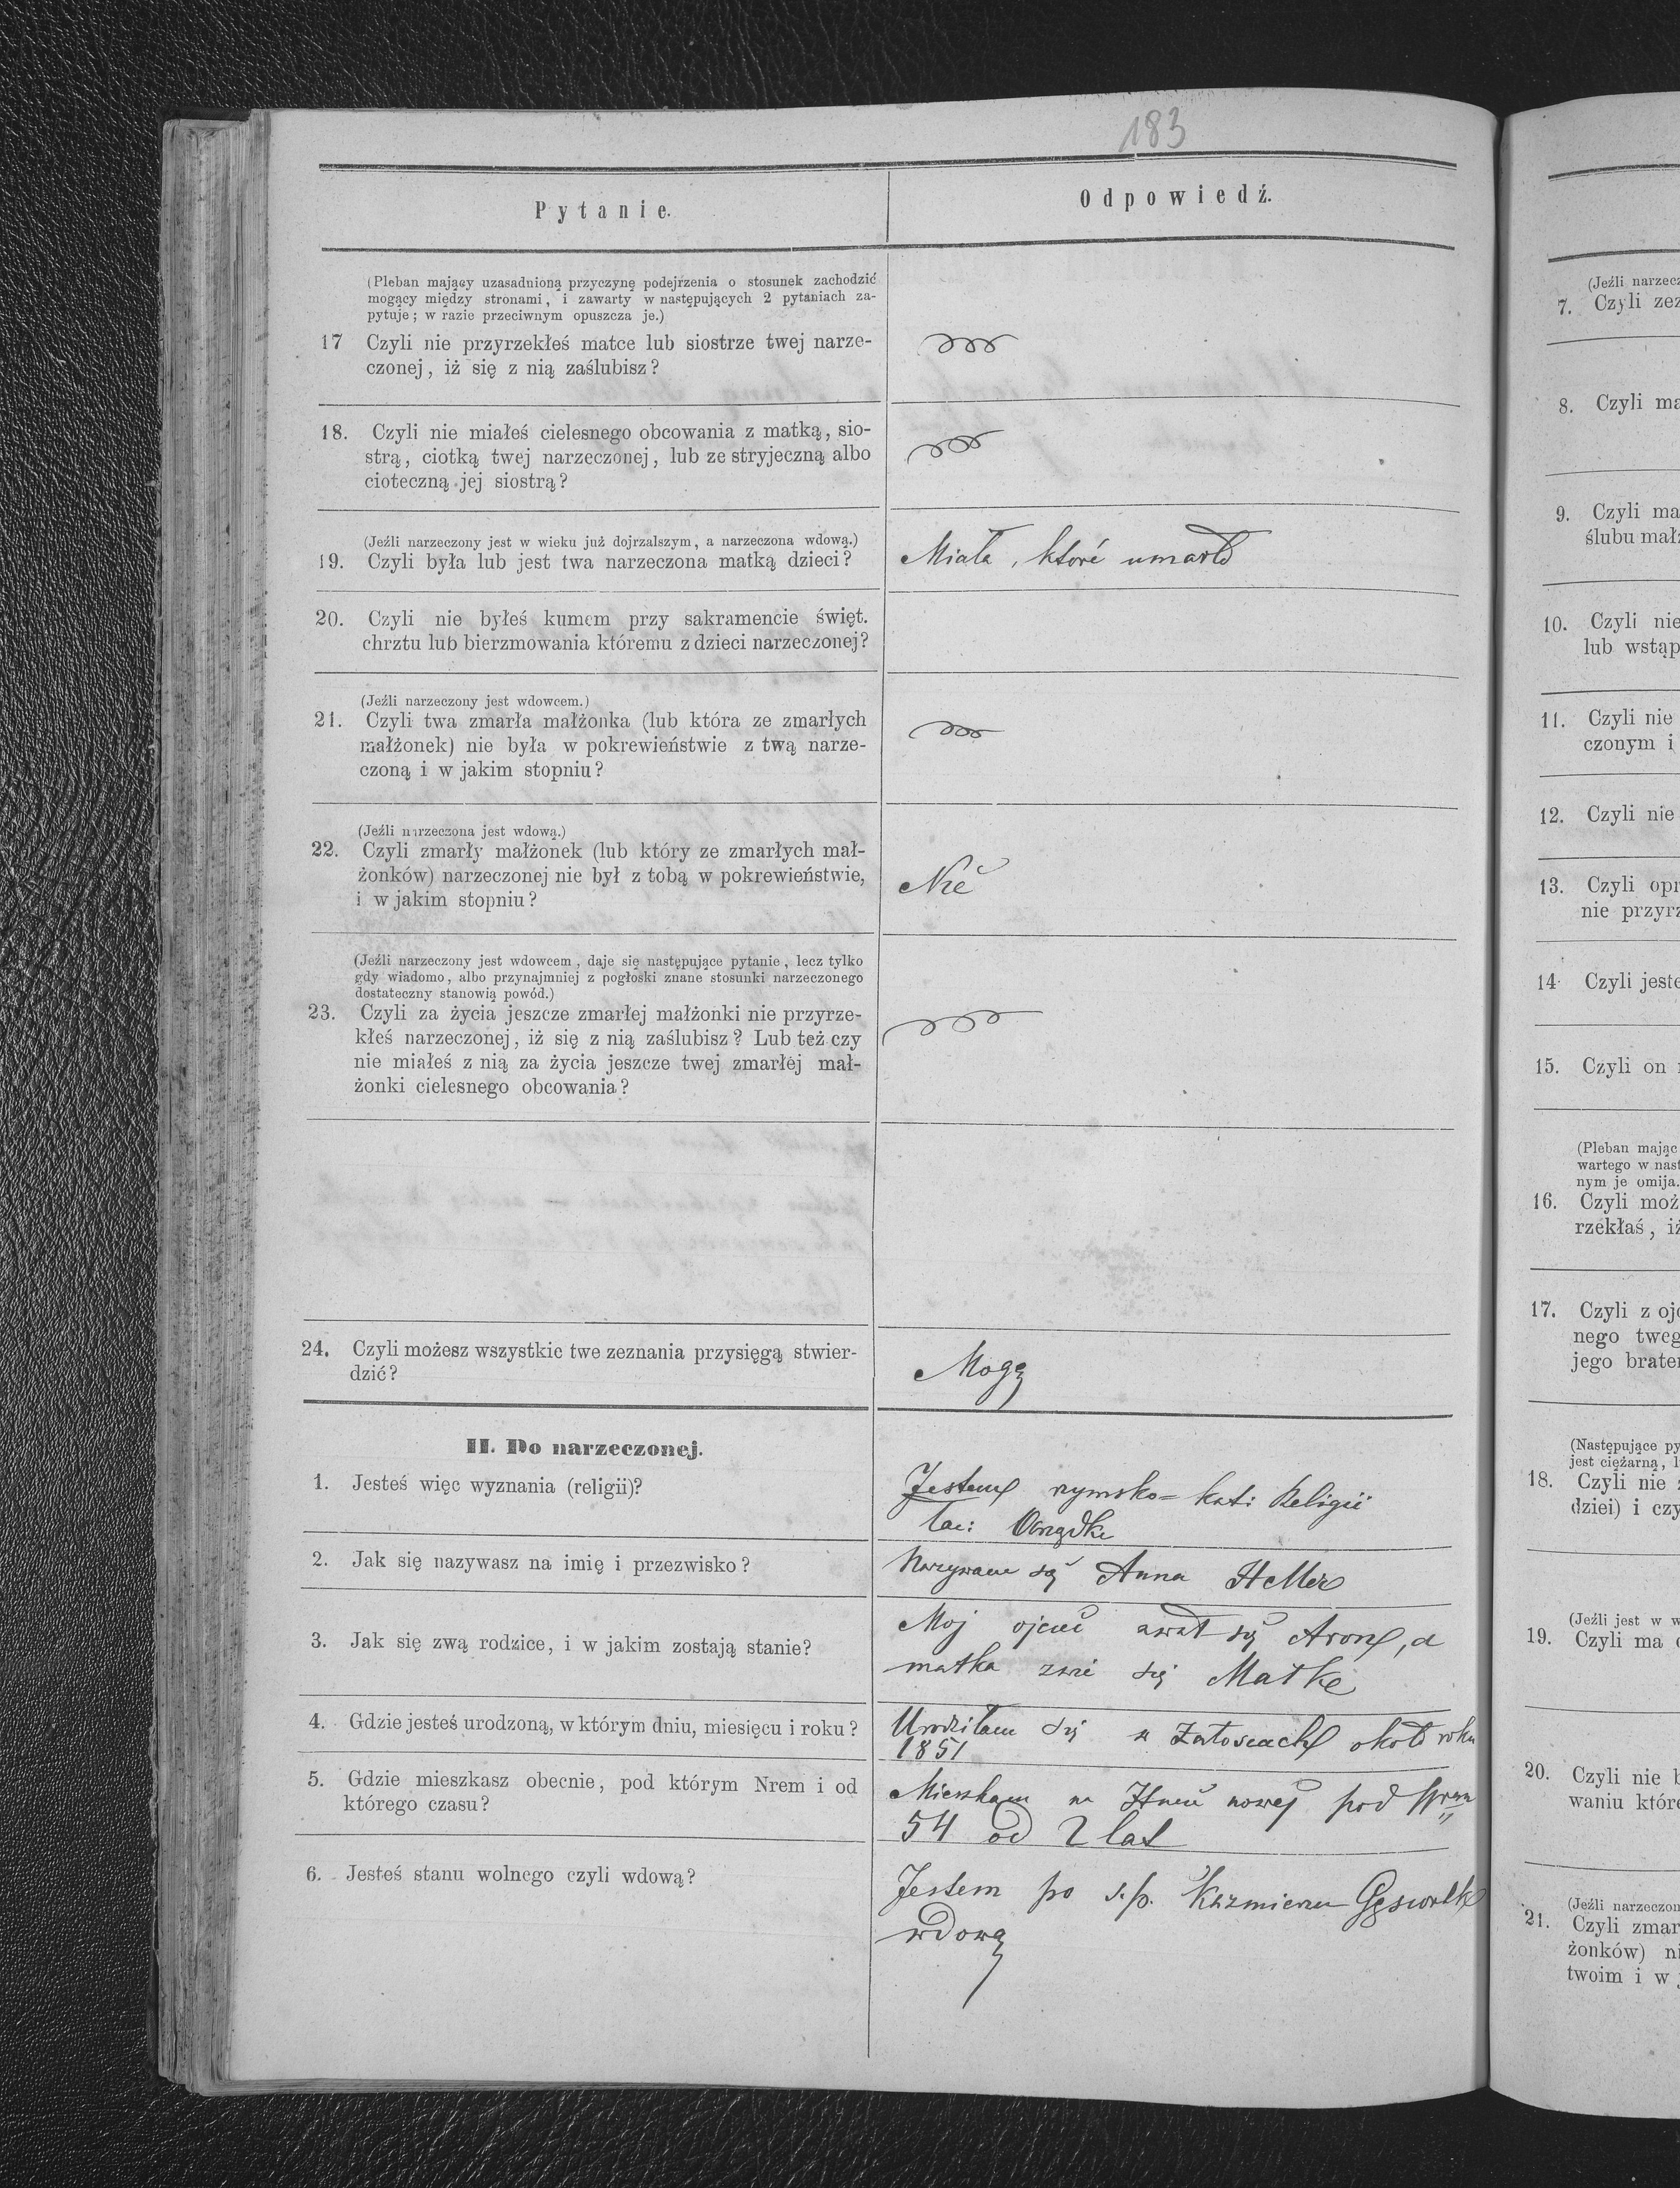 183
Pytanie.
Odpowiedź.
(Pleban mający uzasadnioną przyczynę podejrzenia o stosunek zachodzić
mogący między stronami, i zawarty w następujących 2 pytaniach za-
pytuje; w razie przeciwnym opuszcza je.)
17 Czyli nie przyrzekłeś matce lub siostrze twej narze-
czonej, iż się z nią zaślubisz?
18. Czyli nie miałeś cielesnego obcowania z matką, sio-
strą, ciotką twej narzeczonej, lub ze stryjeczną albo
cioteczną jej siostrą?
(Jeźli narzeczony jest w wieku już dojrzalszym, a narzeczona wdową.)
19. Czyli była lub jest twa narzeczona matką dzieci?
Miała, które umarło
20. Czyli nie byłeś kumem przy sakramencie święt.
chrztu lub bierzmowania któremu z dzieci narzeczonej?
(Jeźli narzeczony jest wdowcem.)
21. Czyli twa zmarła małżonka (lub która ze zmarłych
małżonek) nie była w pokrewieństwie z twą narze-
czoną i w jakim stopniu?
(Jeźli narzeczona jest wdową.)
22. Czyli zmarły małżonek (lub który ze zmarłych mał-
żonków) narzeczonej nie był z tobą w pokrewieństwie,
i w jakim stopniu?
Nie
(Jeźli narzeczony jest wdowcem, daje się następujące pytanie, lecz tylko
gdy wiadomo, albo przynajmniej z pogłoski znane stosunki narzeczonego
dostateczny stanowią powód.)
23. Czyli za życia jeszcze zmarłej małżonki nie przyrze-
kłeś narzeczonej, iż się z nią zaślubisz? Lub też czy
nie miałeś z nią za życia jeszcze twej zmarłéj mał-
żonki cielesnego obcowania?
24. Czyli możesz wszystkie twe zeznania przysięgą stwier-
dzić?
Mogę
II. Do narzeczonej.
1. Jesteś więc wyznania (religii)?
Jestem rymsko=kat: Religii
łac: Obrządku
2. Jak się nazywasz na imię i przezwisko?
Nazywam się Anna Heller
3. Jak się zwą rodzice, i w jakim zostają stanie?
Moj ojciec zwał się Aron, a
matka zwie się Matke
4. Gdzie jesteś urodzoną, w którym dniu, miesięcu i roku?
Urodziłam się w Załoscach około roku
1851
5. Gdzie mieszkasz obecnie, pod którym Nrem i od
którego czasu?
Mieszkam na nowej pod
54 od 2 lat
6. Jesteś stanu wolnego czyli wdową?
Jestem po s.p. Kazmierzu
wdową
(Jeźli narzecz
7. Czyli zez
8. Czyli ma
9. Czyli ma
ślubu małż
10. Czyli nie
lub wstąp
11. Czyli nie
czonym i
12. Czyli nie
13. Czyli opr
nie przyrz
14. Czyli jeste
15. Czyli on
(Pleban mając
wartego w nast
nym je omija.
16. Czyli moż
rzekłaś, iż
17. Czyli z ojc
nego tweg
jego brate
(Następujące py
jest ciężarną, l
18. Czyli nie
dziei) i czy
(Jeźli jest w w
19. Czyli ma
20. Czyli nie b
waniu które
(Jeźli narzeczon
21. Czyli zmar
żonków) ni
twoim i w j